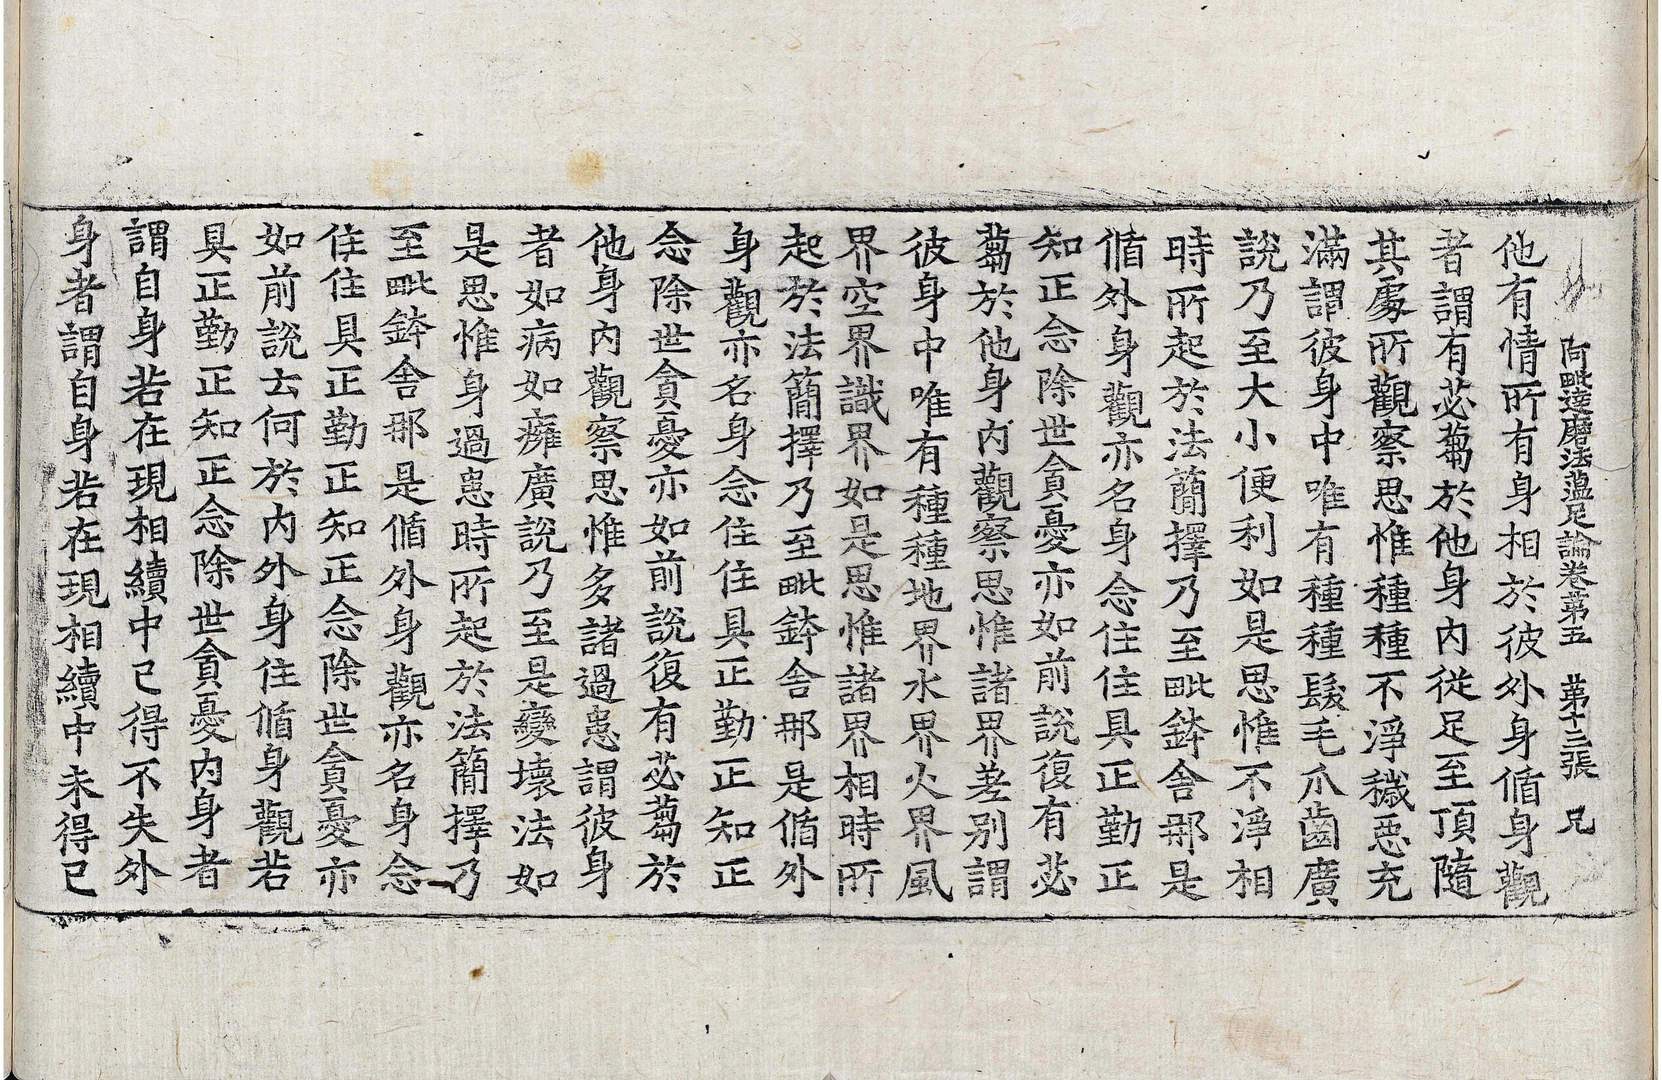 阿毗達磨法蘊足論卷第五　第十三張　兄
他有情所有身相於彼外身循身觀
者謂有苾蒭於他身内從足至頂隨
其處所觀察思惟種種不淨穢惡充
滿謂彼身中唯有種種髮毛爪齒廣
說乃至大小便利如是思惟不淨相
時所起於法簡擇乃至毗鉢舍那是
循外身觀亦名身念住住具正勤正
知正念除世貪憂亦如前說復有苾
蒭於他身内觀察思惟諸界差別謂
彼身中唯有種種地界水界火界風
界空界識界如是思惟諸界相時所
起於法簡擇乃至毗鉢舍那是循外
身觀亦名身念住住具正勤正知正
念除世貪憂亦如前說復有苾蒭於
他身内觀察思惟多諸過患謂彼身
者如病如癰廣說乃至是變壞法如
是思惟身過患時所起於法簡擇乃
至毗鉢舍那是循外身觀亦名身念
住住具正勤正知正念除世貪憂亦
如前說云何於内外身住循身觀若
具正勤正知正念除世貪憂内身者
謂自身若在現相續中已得不失外
身者謂自身若在現相續中未得已